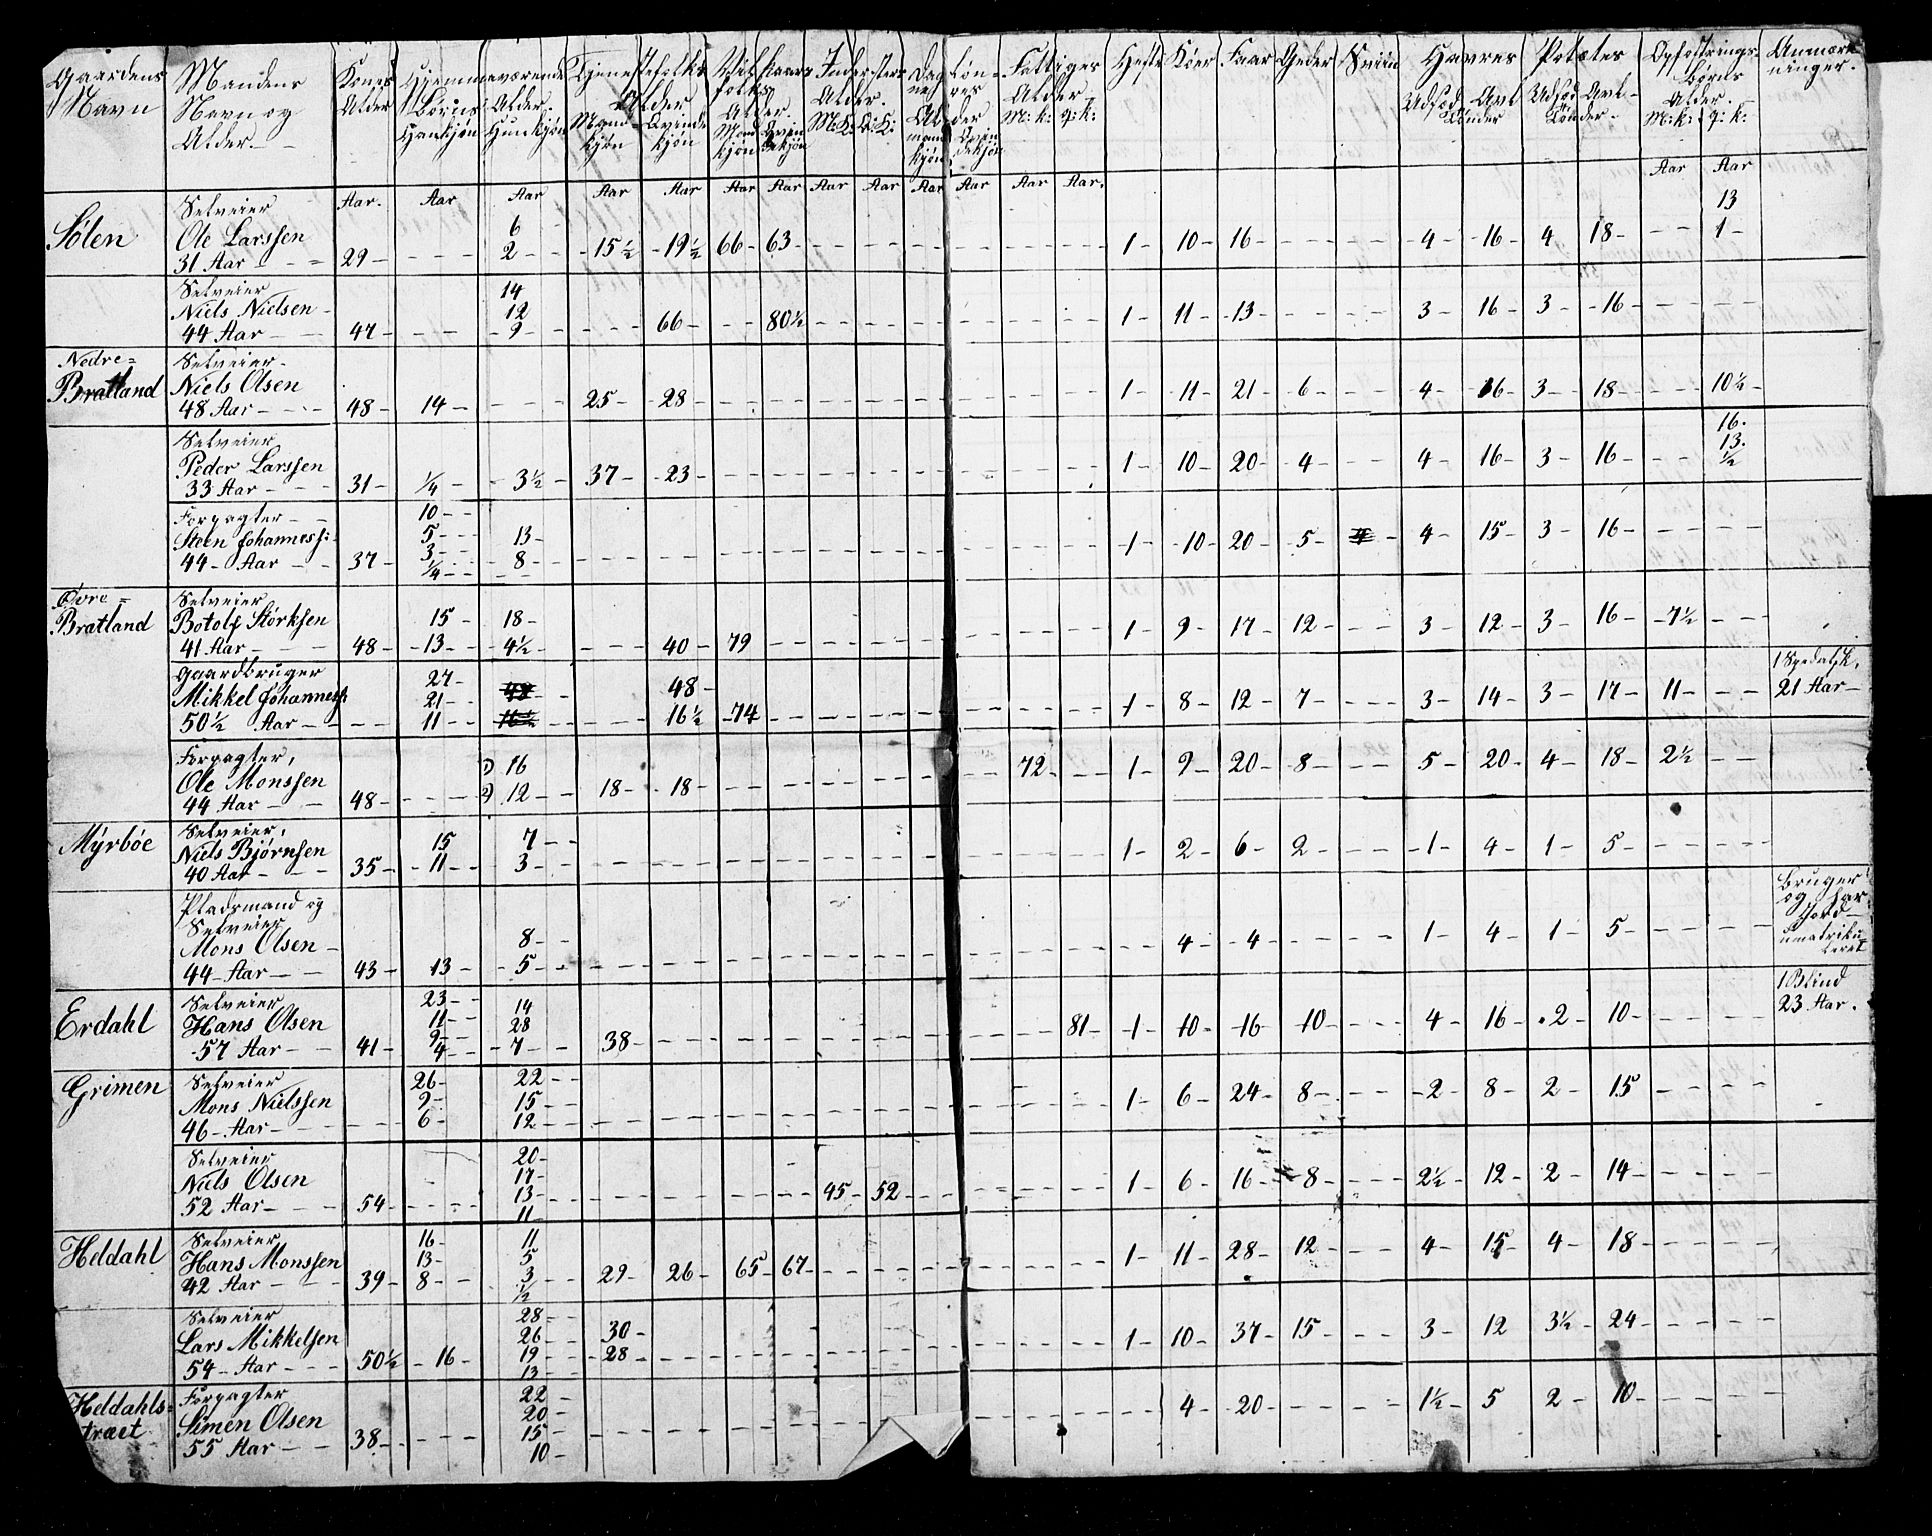 Gaardens Navn | Mandens Navn og Alder. | Kones Alder | Hjemmeværende Børns Alder. Hankjøn | Hunkjøn | Tjenestefolks Alder Mandkjøn | Qvindekjøn | Vilkaarsfolks Alder. Mandkjøn | Qvindekjøn | Inderster Alder. M:K: | Q:K: | Dagløn- Alder mandkjøn | Qvindekjøn | Fattiges Alder M:k: | q:k: | Heste | Køer | Faar | Geder | Sviin | Havres Udsæd | Avl Tønder | Potætes Udsæd | Avl Tønder | Opfostringsbørns Alder. M:k: | q:k: | Anmærkninger.
Aar. Aar Aar Aar Aar Aar Aar Aar Aar Aar Aar Aar Aar. Aar Aar
Sølen
Selveier 13
Ole Larssen 6 1 - 10 - 16 - 4 - 16 - 4 18 - 1 -
31 Aar 29 - 2 - 15½ - 19½ 66 - 63
Selveier 14
Niels Nielsen 12 1 - 11 - 13 - 3 - 16 - 3 - 16 -
44 Aar 47 - 9 - 66 - 80½
Nedre=
Bratland
Selveier
Niels Olsen 1 - 11 - 21 - 6 - 4 - 16 - 3 - 18 - 10½
48 Aar 48 - 14 - 25 - 28
Selveier 16.
Peder Larssen 1 - 10 - 20 - 4 - 4 - 16 - 3 - 16 - 13. ½
33 Aar 31 - ¼ - 3½ - 37 - 23
Forpagter 10
Steen Johanness: 5 13 1 - 10 - 20 - 5 - 4 - 15 - 3 - 16 -
44 - Aar 37 - 3 8
¼
Øvre=
Bratland
Selveier
Botolf Størksen 15 - 18 - 1 - 9 - 17 - 12 - 3 - 12 - 3 - 16 - 7½
41 Aar 48 - 13 - 4½ 40 - 79
Gaardbruger 27 - 1 Spedalsk.
Mikkel Johanness: 21 - 48 48 - 1 - 8 - 12 - 7 - 3 - 14 - 3 - 17 - 11 - 21 Aar
50½ Aar 11 - 16½ 16½ - 74
Forpagter, 1) 16 72 - 1 - 9 - 20 - 8 - 5 - 20 - 4 - 18 - 2½
Ole Monssen
44 Aar 48 - 2) 12 - 18 - 18 -
Mýrbøe
Selveier,
Niels Bjørnsen 15 7 1 - 2 - 6 - 2 - 1 - 4 - 1 - 5 -
40 Aar 35 - 11 - 3
Pladsmand og
Selveier
Mons Olsen 8 - 4 - 4 - 1 - 4 - 1 - 5 -
44 - Aar 43 - 13 - 5
Bruger
og har
Jord
umatriku
leret
Erdahl
Selveier 23 14 1 Blind
Hans Olsen 11 28 81 - 1 - 10 - 16 - 10 - 4 - 16 - 2 - 10 - 23 Aar.
57 Aar 41 - 9 7 38
4
Grimen
Selveier 26 - 22
Mons Nielssen 9 - 15 1 - 6 - 24 - 8 - 2 - 8 - 2 - 15 -
46 - Aar 6 - 12
Selveier 20
Niels Olsen 17 1 - 6 - 16 - 8 - 2½ - 12 - 2 - 14 -
52 Aar 54 - 13 45 - 52
11
Heldahl
Selveier 16 - 11
Hans Monssen 13 - 5 1 - 11 - 28 - 12 - 4 - 15 - 4 - 18 -
42 Aar 39 - 8 - 3 29 - 26 - 65 - 67
½
Selveier 28
Lars Mikkelsen 26 30 1 - 10 - 37 - 15 - 3 - 12 3½ - 24 -
54 - Aar 50½ - 16 - 19 28
13
Heldahls=
træet
Forpagter 22
Simen Olsen 20 4 - 20 - 1½ - 5 2 - 10 -
55 Aar 38 - 15
10